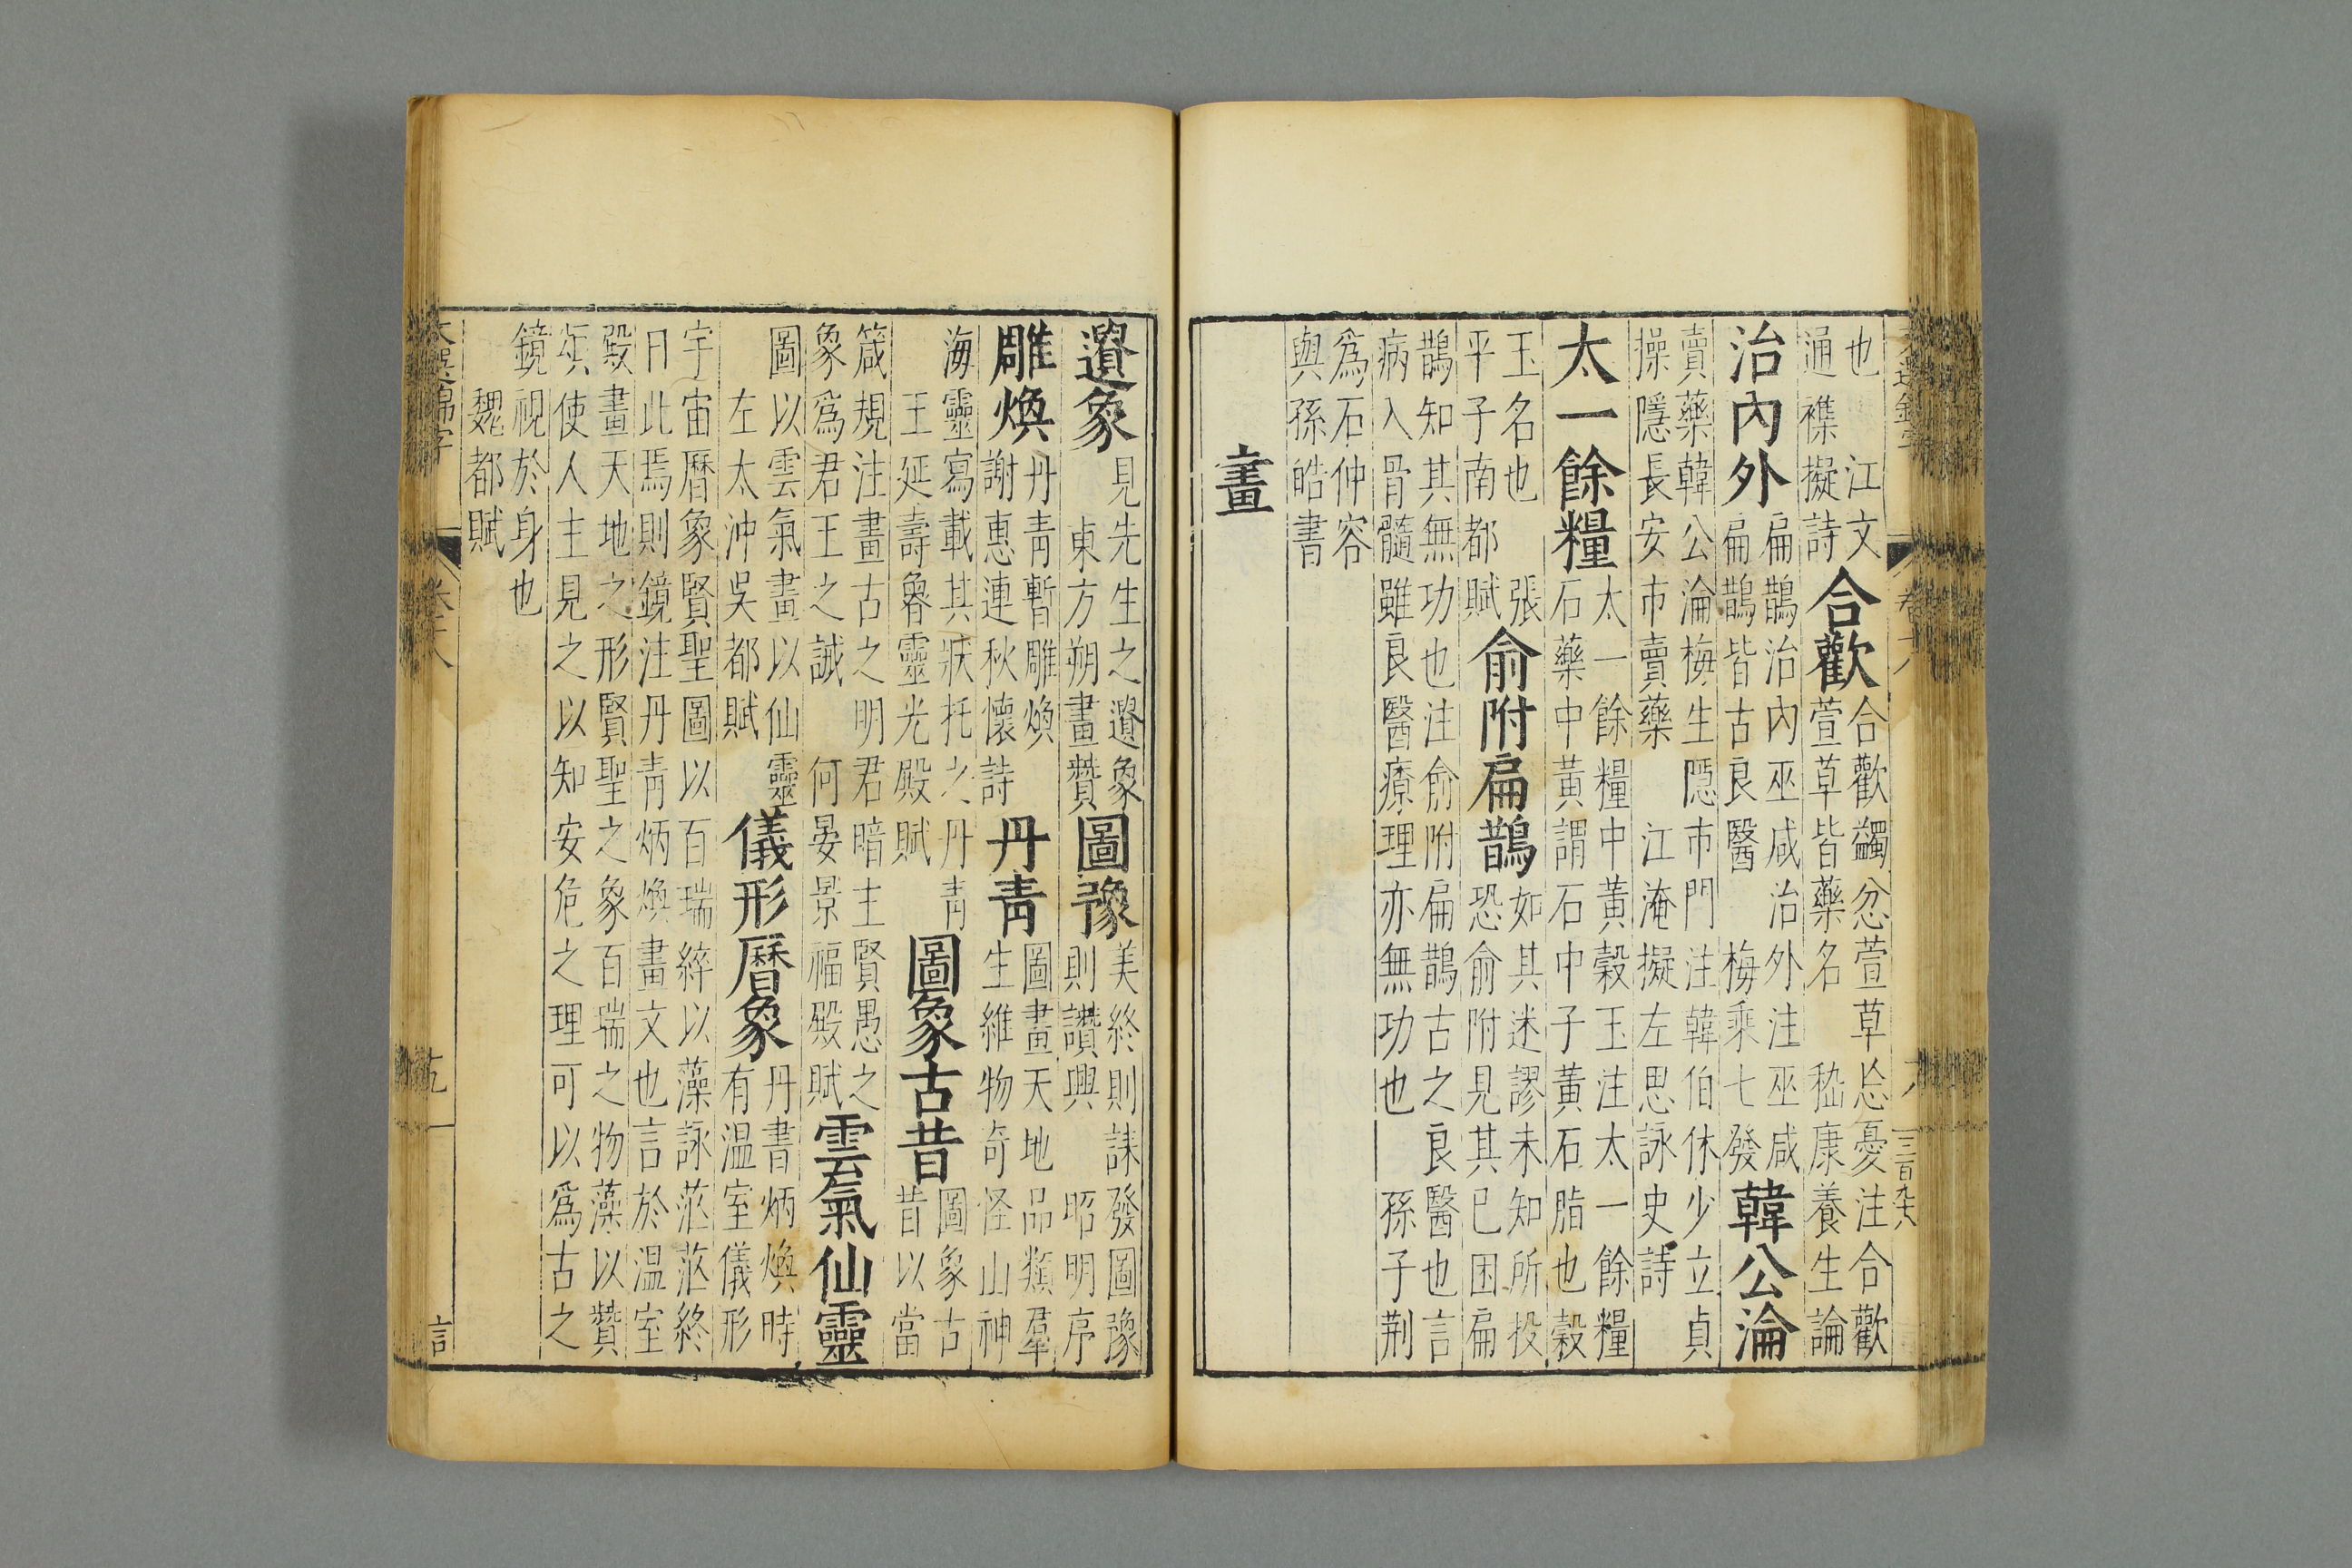 也　江文
通襍擬詩
合歡
合歡蠲忿萱草忘憂注合歡
萱草皆藥名　嵇康養生論
治內外
扁鵲治內巫咸治外注巫咸
扁鵲皆古良醫　梅乘七發
韓公淪
賣藥韓公淪梅生隱市門　注韓伯休少立貞
操隱長安市賣藥　江淹擬左思詠史詩
太一餘糧
太一餘糧中黃榖玉注太一餘糧
石藥中黃謂石中子黃石脂也榖
玉名也　張
平子南都賦
俞附扁鵲
如其迷謬未知所投
恐俞附見其已困扁
鵲知其無功也注俞附扁鵲古之良醫也言
病入骨髓雖良醫療理亦無功也　孫子荆
為石仲容
與孫皓書
畫
遺象
見先生之遺象
東方朔畫贊
圖豫
美終則誄發圖豫
則讚興　昭明序
雕煥
丹青暫雕煥
謝惠連秋懷詩
丹青
圖畫天地品類羣
生維物奇怪山神
海靈寫載其狀托之丹青
王延壽魯靈光殿賦
圖象古昔
圖象古
昔以當
箴規注畫古之明君暗主賢愚之
象為君王之誡　何晏景福殿賦
雲氣仙靈
圖以雲氣畫以仙靈
左太沖吳都賦
儀形曆象
丹書炳煥時
有温室儀形
宇宙曆象賢聖圖以百瑞綷以藻詠茫茫終
日此焉則鏡注丹青炳煥畫文也言於温室
殿畫天地之形賢聖之象百瑞之物藻以贊
頌使人主見之以知安危之理可以為古之
鏡視於身也
魏都賦